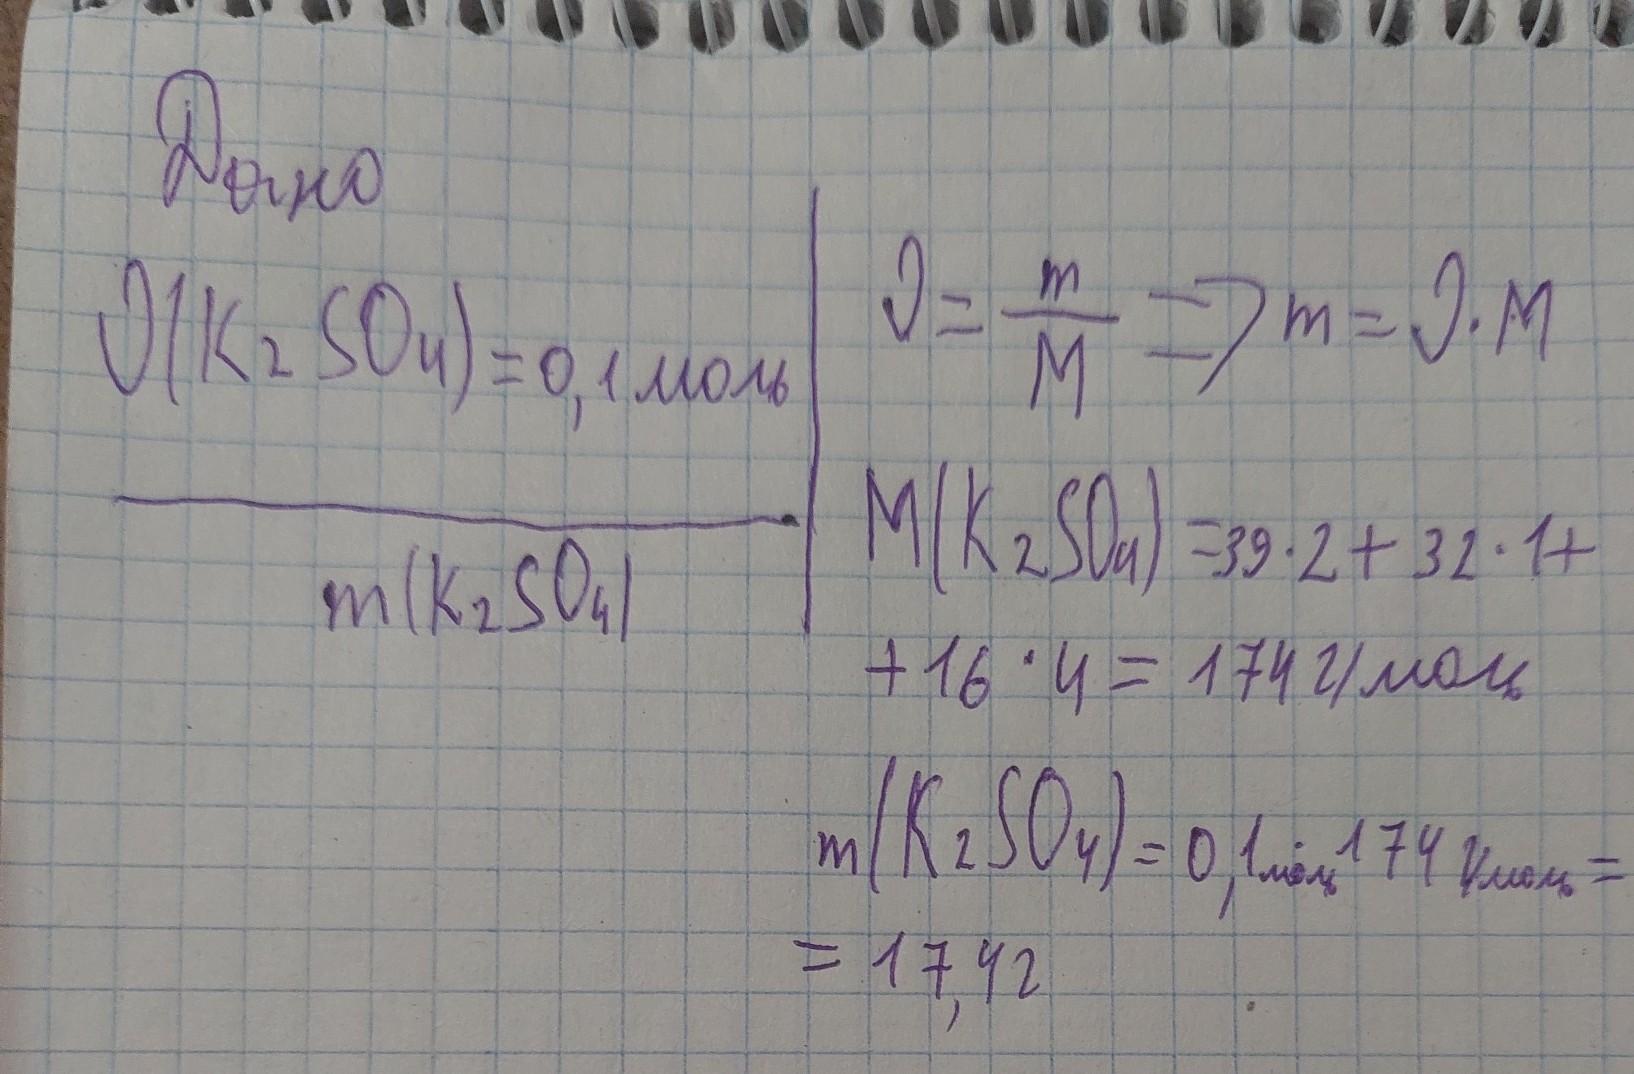 Дано
ν(K₂SO₄) = 0,1 моль
m(K₂SO₄)
ν = m/M => m = ν · M
M(K₂SO₄) = 39 · 2 + 32 · 1 +
+ 16 · 4 = 174 г/моль
m(K₂SO₄) = 0,1 моль · 174 г/моль =
= 17,4 г